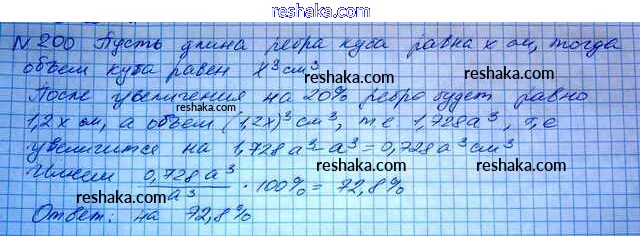 reshaka.com
N 200 Пусть длина ребра куба равна x см, тогда
объем куба равен x³ см³
reshaka.com
reshaka.com
После увеличения на 20% ребро будет равно
1,2x см, а объем (1,2x)³ см³, т.е 1,728a³, т.е
reshaka.com
reshaka.com
увеличится на 1,728a³-a³=0,728a³см³
reshaka.com
Имеем 0,728a³/a³ · 100% = 72,8%
reshaka.com
reshaka.com
Ответ: на 72,8%
reshaka.com